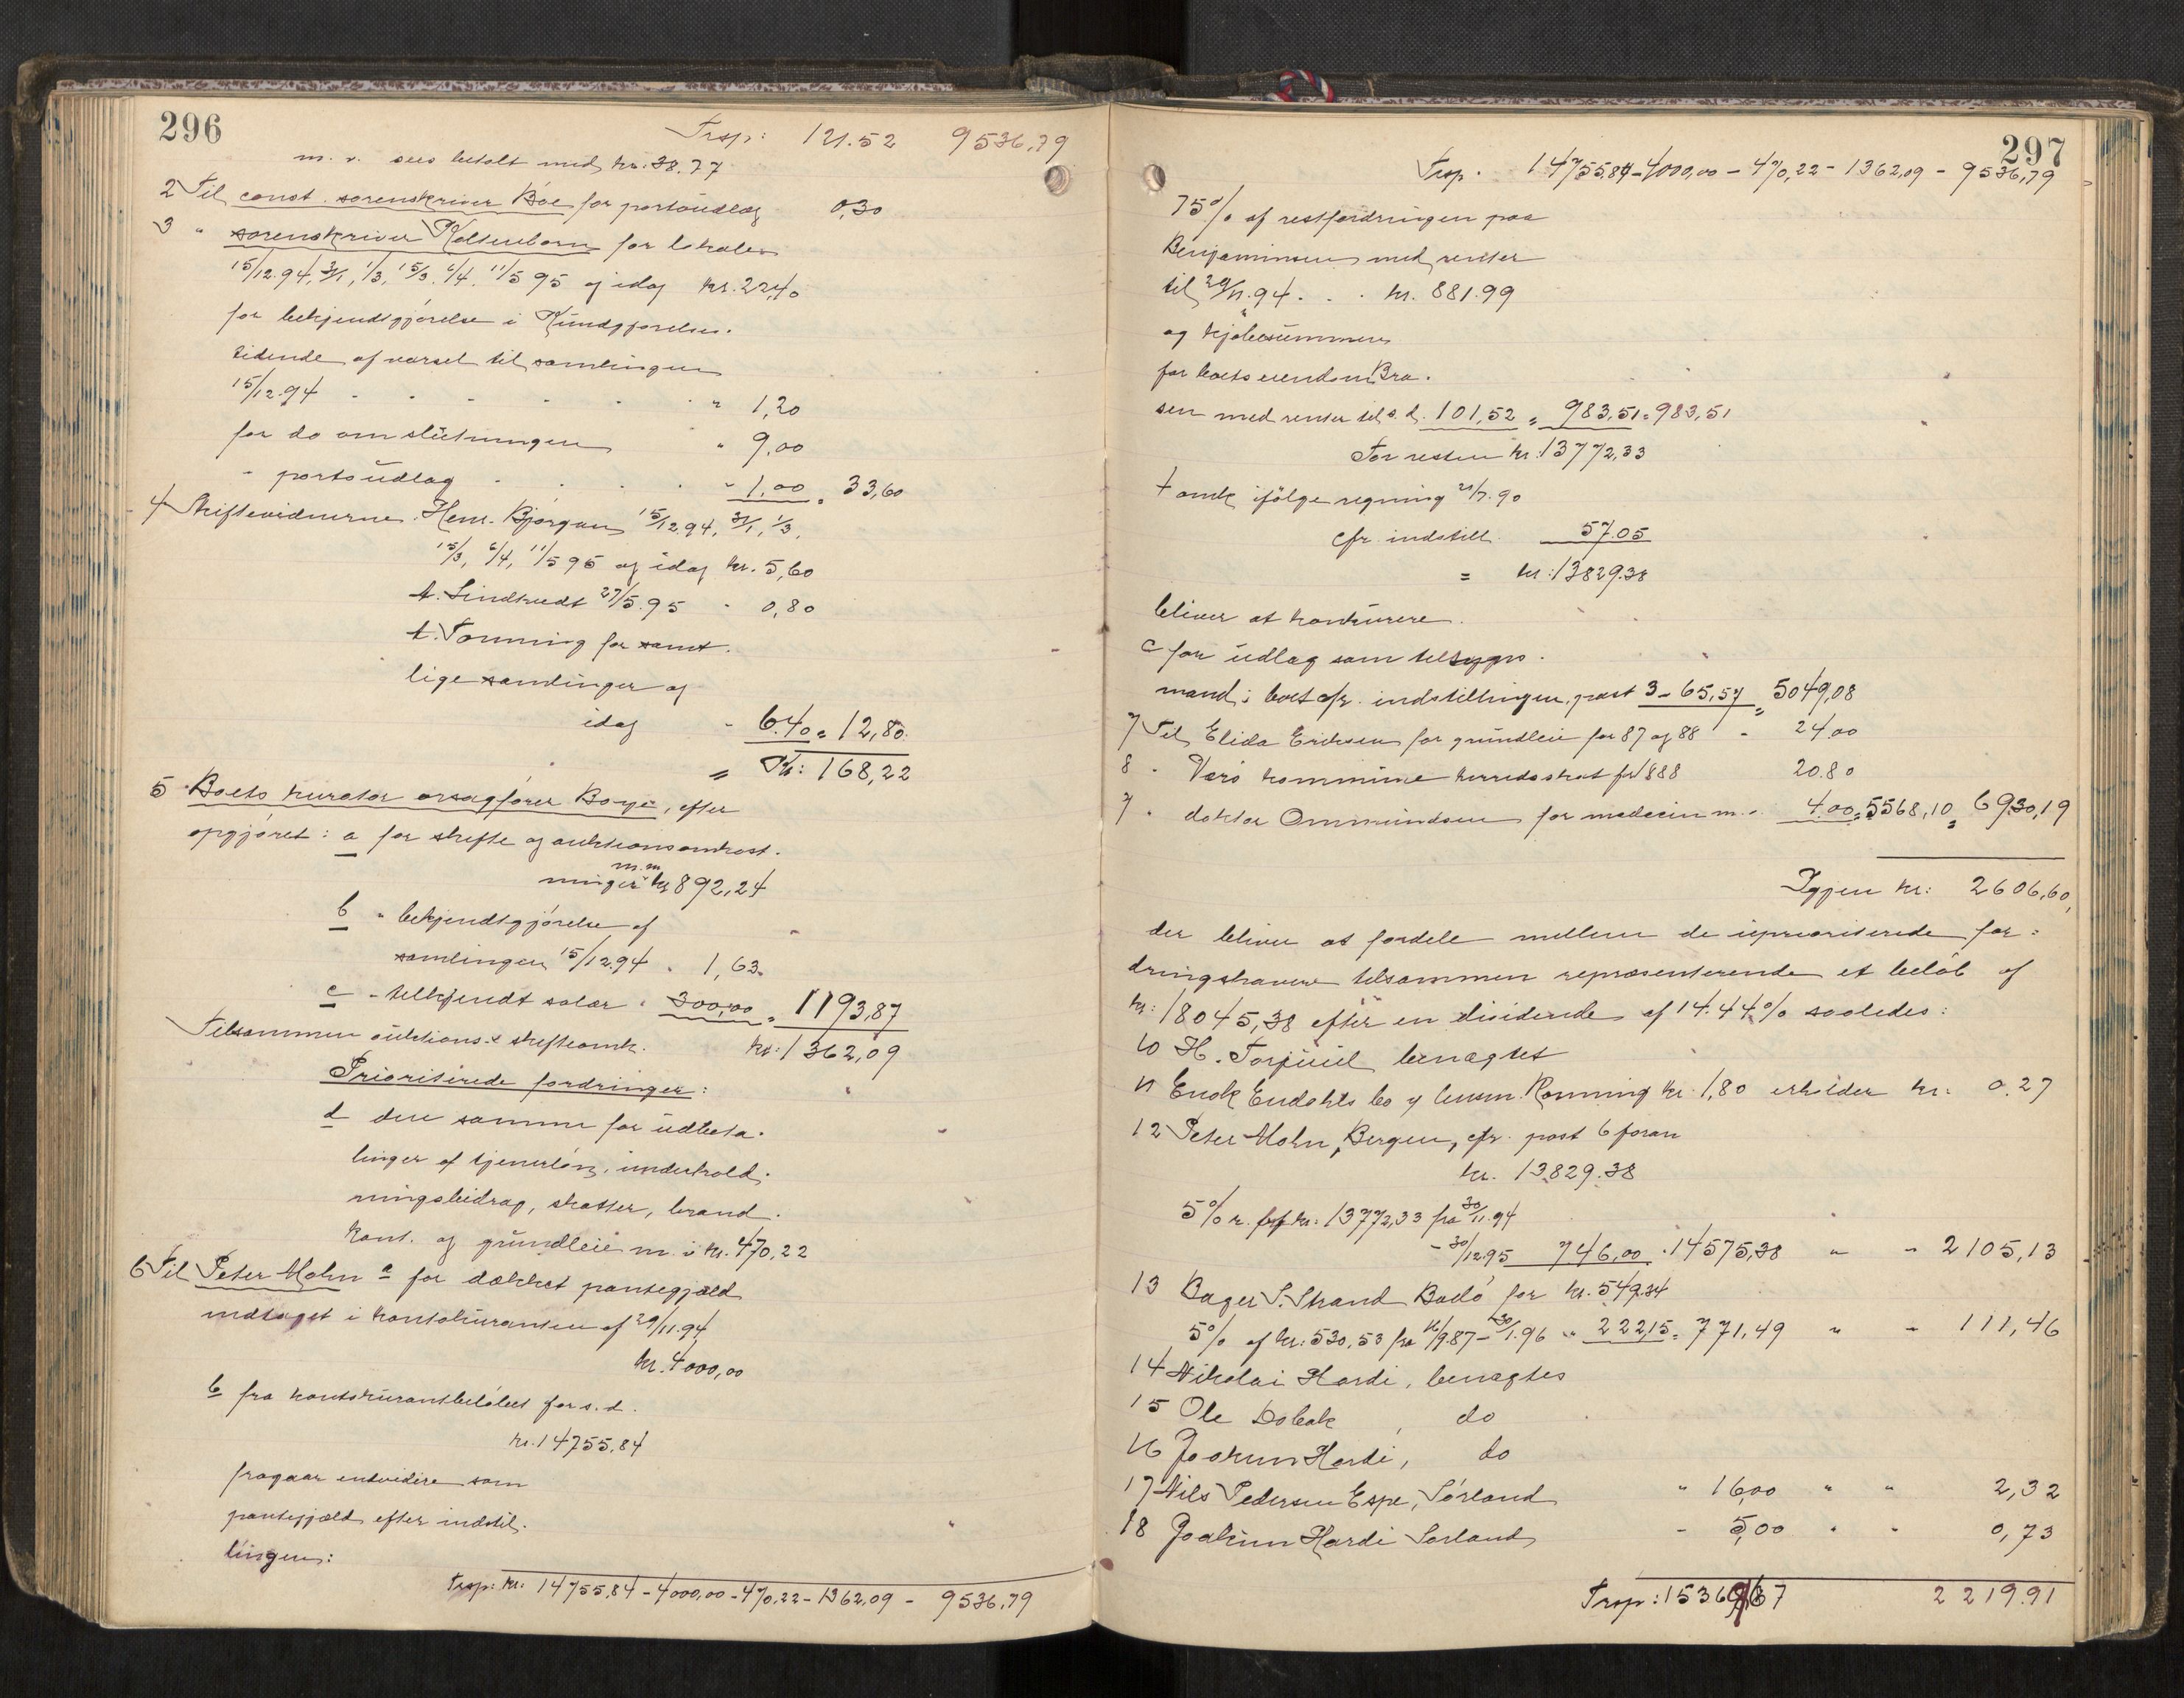 296
Trsp: 121.52 9536,79
m. v. sees betalt med kr. 38.77
2 Til const. sorenskriver Böe for portoudlæg 0,30
3 " sorenskriver Koltenborn for lokaler
15/12.94, 31/1, 1/3, 15/3, 6/4, 11/5 95 og idag kr. 22,40
for bekjendtgjörelse i Kundgjörelses-
tidende af varsel til samlingen
15/12.94 " 1,20
for do om slutningen " 9,00
" portoudlæg " 1,00 = 33,60
4 Skiftevidnerne: Henr. Bjørgan 15/12.94, 31/1, 1/3,
15/3, 6/4, 11/5 95 og idag kr. 5,60
A. Lindtvedt 27/5.95 - 0,80
t. Tomming for samt-
lige samlinger og
idag - 6.40 = 12,80
= Kr: 168,22
5 Boets kurator orsagfører Boye, efter
opgjöret: a for skifte og auktionsomkost-
m.m.
ninger kr 892,24
b " bekjendtgjörelse af
samlingen 15/12.94 " 1,63
c - tilkjendt salær " 300,00 = 1193,87
Tilsammen auktions- & skifteomk. kr: 1362,09
Prioriterede fordringer:
d den samme for udbeta-
linger af tjenerlön, underhold-
ningsbidrag, skatter, brand-
kont. og grundleie m. v kr. 470,22
6 Til Peter Mohn a for dækket pantegjæld
indtaget i kontokuranten af 29/11.94
kr. 4000,00
b fra kontokurantbelöbet for s. d.
kr. 14755,84
fragaar endvidere som
pantegjæld efter indstil-
lingen:
Trsp: kr: 14755,84 - 4000,00 - 470,22 - 1362,09 - 9536,79
297
Trsp. 14755,84 - 4000,00 - 470,22 - 1362,09 - 9536,79
75% af restfordringen paa
Benjaminsen med renter
til 29/11.94 . . . kr. 881.99
og kjöbesummen
for boets eiendom Bra-
sen med renter til s. d. 101,52 = 983,51 = 983,51
For resten kr: 13772,33
+ omk ifölge regning 21/7.90
cfr. indstill. 57.05
= kr: 13829.38
bliver at konkurere.
c for udlæg som tilsyns-
mand i boet cfr. indstillingen, post 3 - 65,57 = 5049,08
7 Til Elida Eriksen for grundleie for 87 og 88 - 24,00
8 " Værö kommune herredsskat for 1888 20.80
7 " doktor Ommundsen for medecin m. v. 4.00 = 5568,10 = 6930,19
Igjen kr: 2606,60,
der bliver at fordele mellem de uprioriterede for-
dringshavere tilsammen repræsenterende et belöb af
kr: 18045,38 efter en dividende af 14.44% saaledes:
10 H. Torjuul benægtet
11 Enok Endahls bo v/ lensm. Rönning kr. 1,80 erholder kr: 0.27
12 Peter Mohn, Bergen, cfr. post 6 foran
kr. 13829.38
5% r. af kr: 13772,33 fra 30/11.94
- 30/12.95 746,00 . 14575,38 " " 2105,13
13 Bager S. Strand Bodö for kr. 549,34
5% af kr: 530,53 fra 16/9.87 - 30/1.96 " 222,15 = 771,49 " " 111,46
14 Nikolai Hardi, benægtes
15 Ole Dobak, do
16 Joakim Hardi, do
17 Nils Pedersen Espe, Sörland " 16,00 " " 2,32
18 Joakim Hardi Sorland - 5,00 " " 0,73
Trsp: 15369,67 2219.91